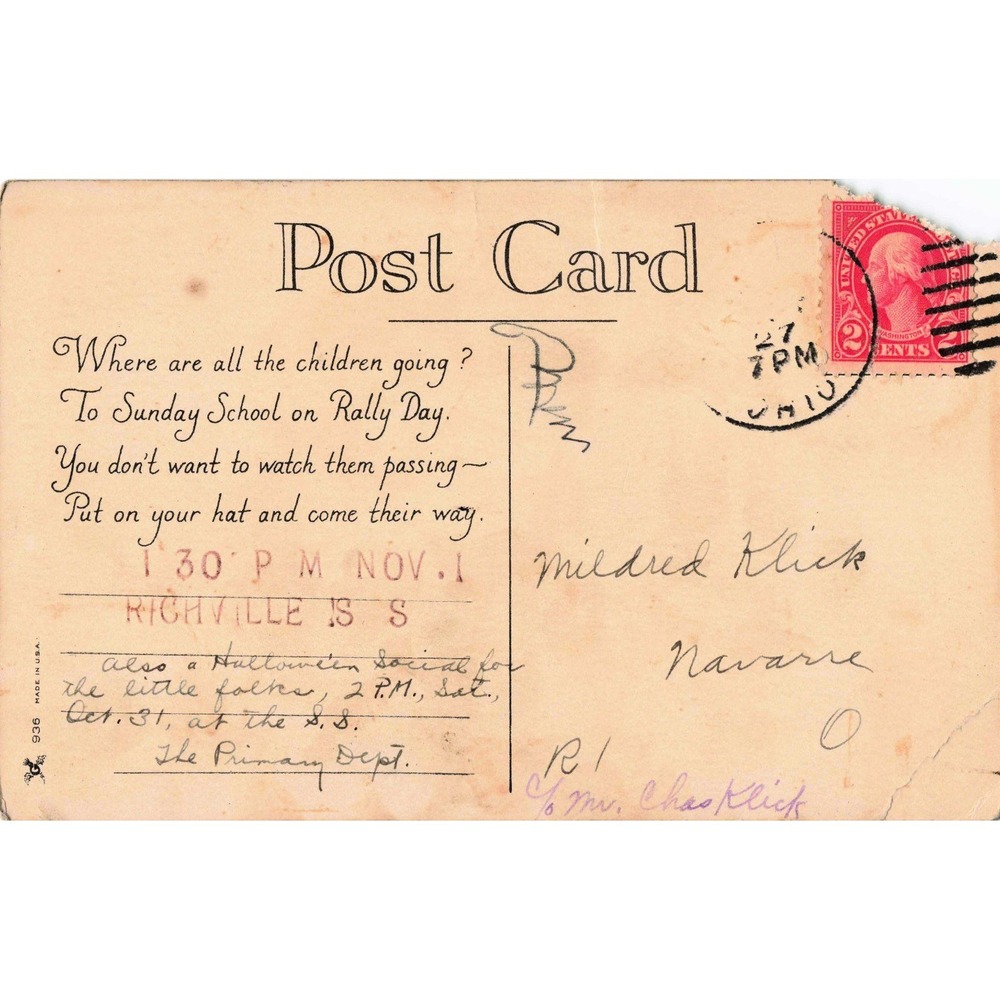 Post Card
UNITED STATES
WASHINGTON
2 CENTS 2
27
7 PM
OHIO
Where are all the children going?
To Sunday School on Rally Day.
You don't want to watch them passing—
Put on your hat and come their way.
1 30 P M NOV. 1
RICHVILLE S S
Also a Hallowe'en Social for
the little folks, 2 P.M., Sat.,
Oct. 31, at the S.S.
The Primary Dept.
Mildred Klick
Navarre
O
R 1
c/o Mr. Chas Klick
936 MADE IN U.S.A.
G